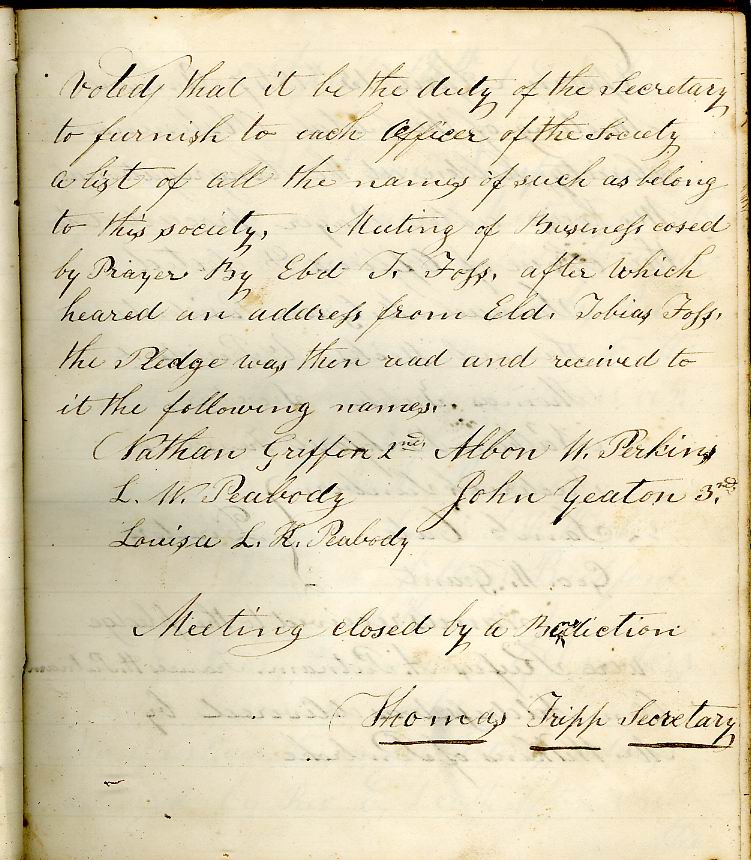 Voted, that it be the duty of the Secretary
to furnish to each Officer of the Society
a list of all the names of such as belong
to this society, Meeting of Business cosed
by Prayer By Ebd T. Foss, after which
heared an address from Eld. Tobias Foss,
the Pledge was then read and received to
it the following names.
Nathan Griffin 2nd Albon W. Perkins
L. W. Peabody John Yeaton 3.nd.
Louisa L. H. Peabody
Meeting closed by a Benediction
Thomas Tripp Secretary